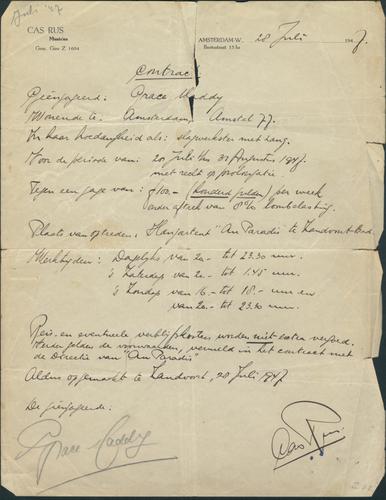 Juli '47
CAS RUS
Musicus
Gem. Giro Z 1604
AMSTERDAM-W., 20 Juli 1947.
15 hs
Contract
Geëngageerd: Grace Kaddy
Wonende te: Amsterdam, Amstel 77.
In haar hoedanigheid als: slagwerkster met zang.
Voor de periode van: 20 Juli t/m 31 Augustus 1947.
met recht op prolongatie.
Tegen een gage van: f 100.- (honderd gulden) per week
onder aftrek van 8% loonbelasting.
Plaats van optreden: "Au Paradis" te Zandvoort-Bad.
Werktijden: Dagelijks van 20.- tot 23.30 uur.
's Zaterdags van 20.- tot 1.45 uur.
's Zondags van 16.- tot 18.- uur en
van 20.- tot 23.30 uur.
Reis- en eventuele verblijfkosten worden niet extra vergoed.
Verder gelden de voorwaarden, vermeld in het contract met
de Directie van "Au Paradis"
Aldus opgemaakt te Zandvoort, 20 Juli 1947
De geëngageerde:
Grace Kaddy
Cas Rus.